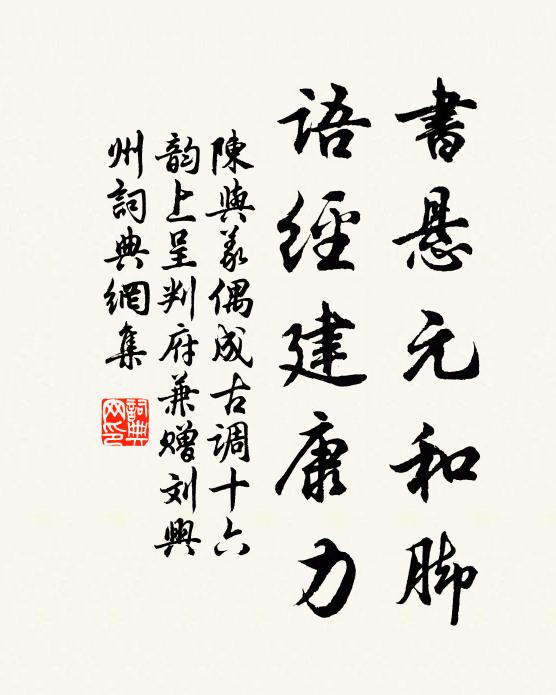 書悬元和脚
語經建康力
陳與義偶成古调十六
韵上呈判府兼赠刘興
州詞典網集
詞典網印